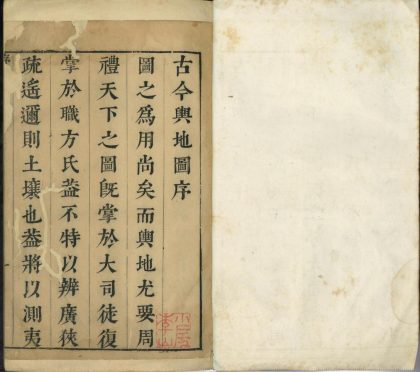 古今輿地圖序
圖之為用尚矣而輿地尤要周
禮天下之圖既掌於大司徒復
掌於職方氏葢不特以辨廣狹
疏遙邇則土壤也葢將以測夷